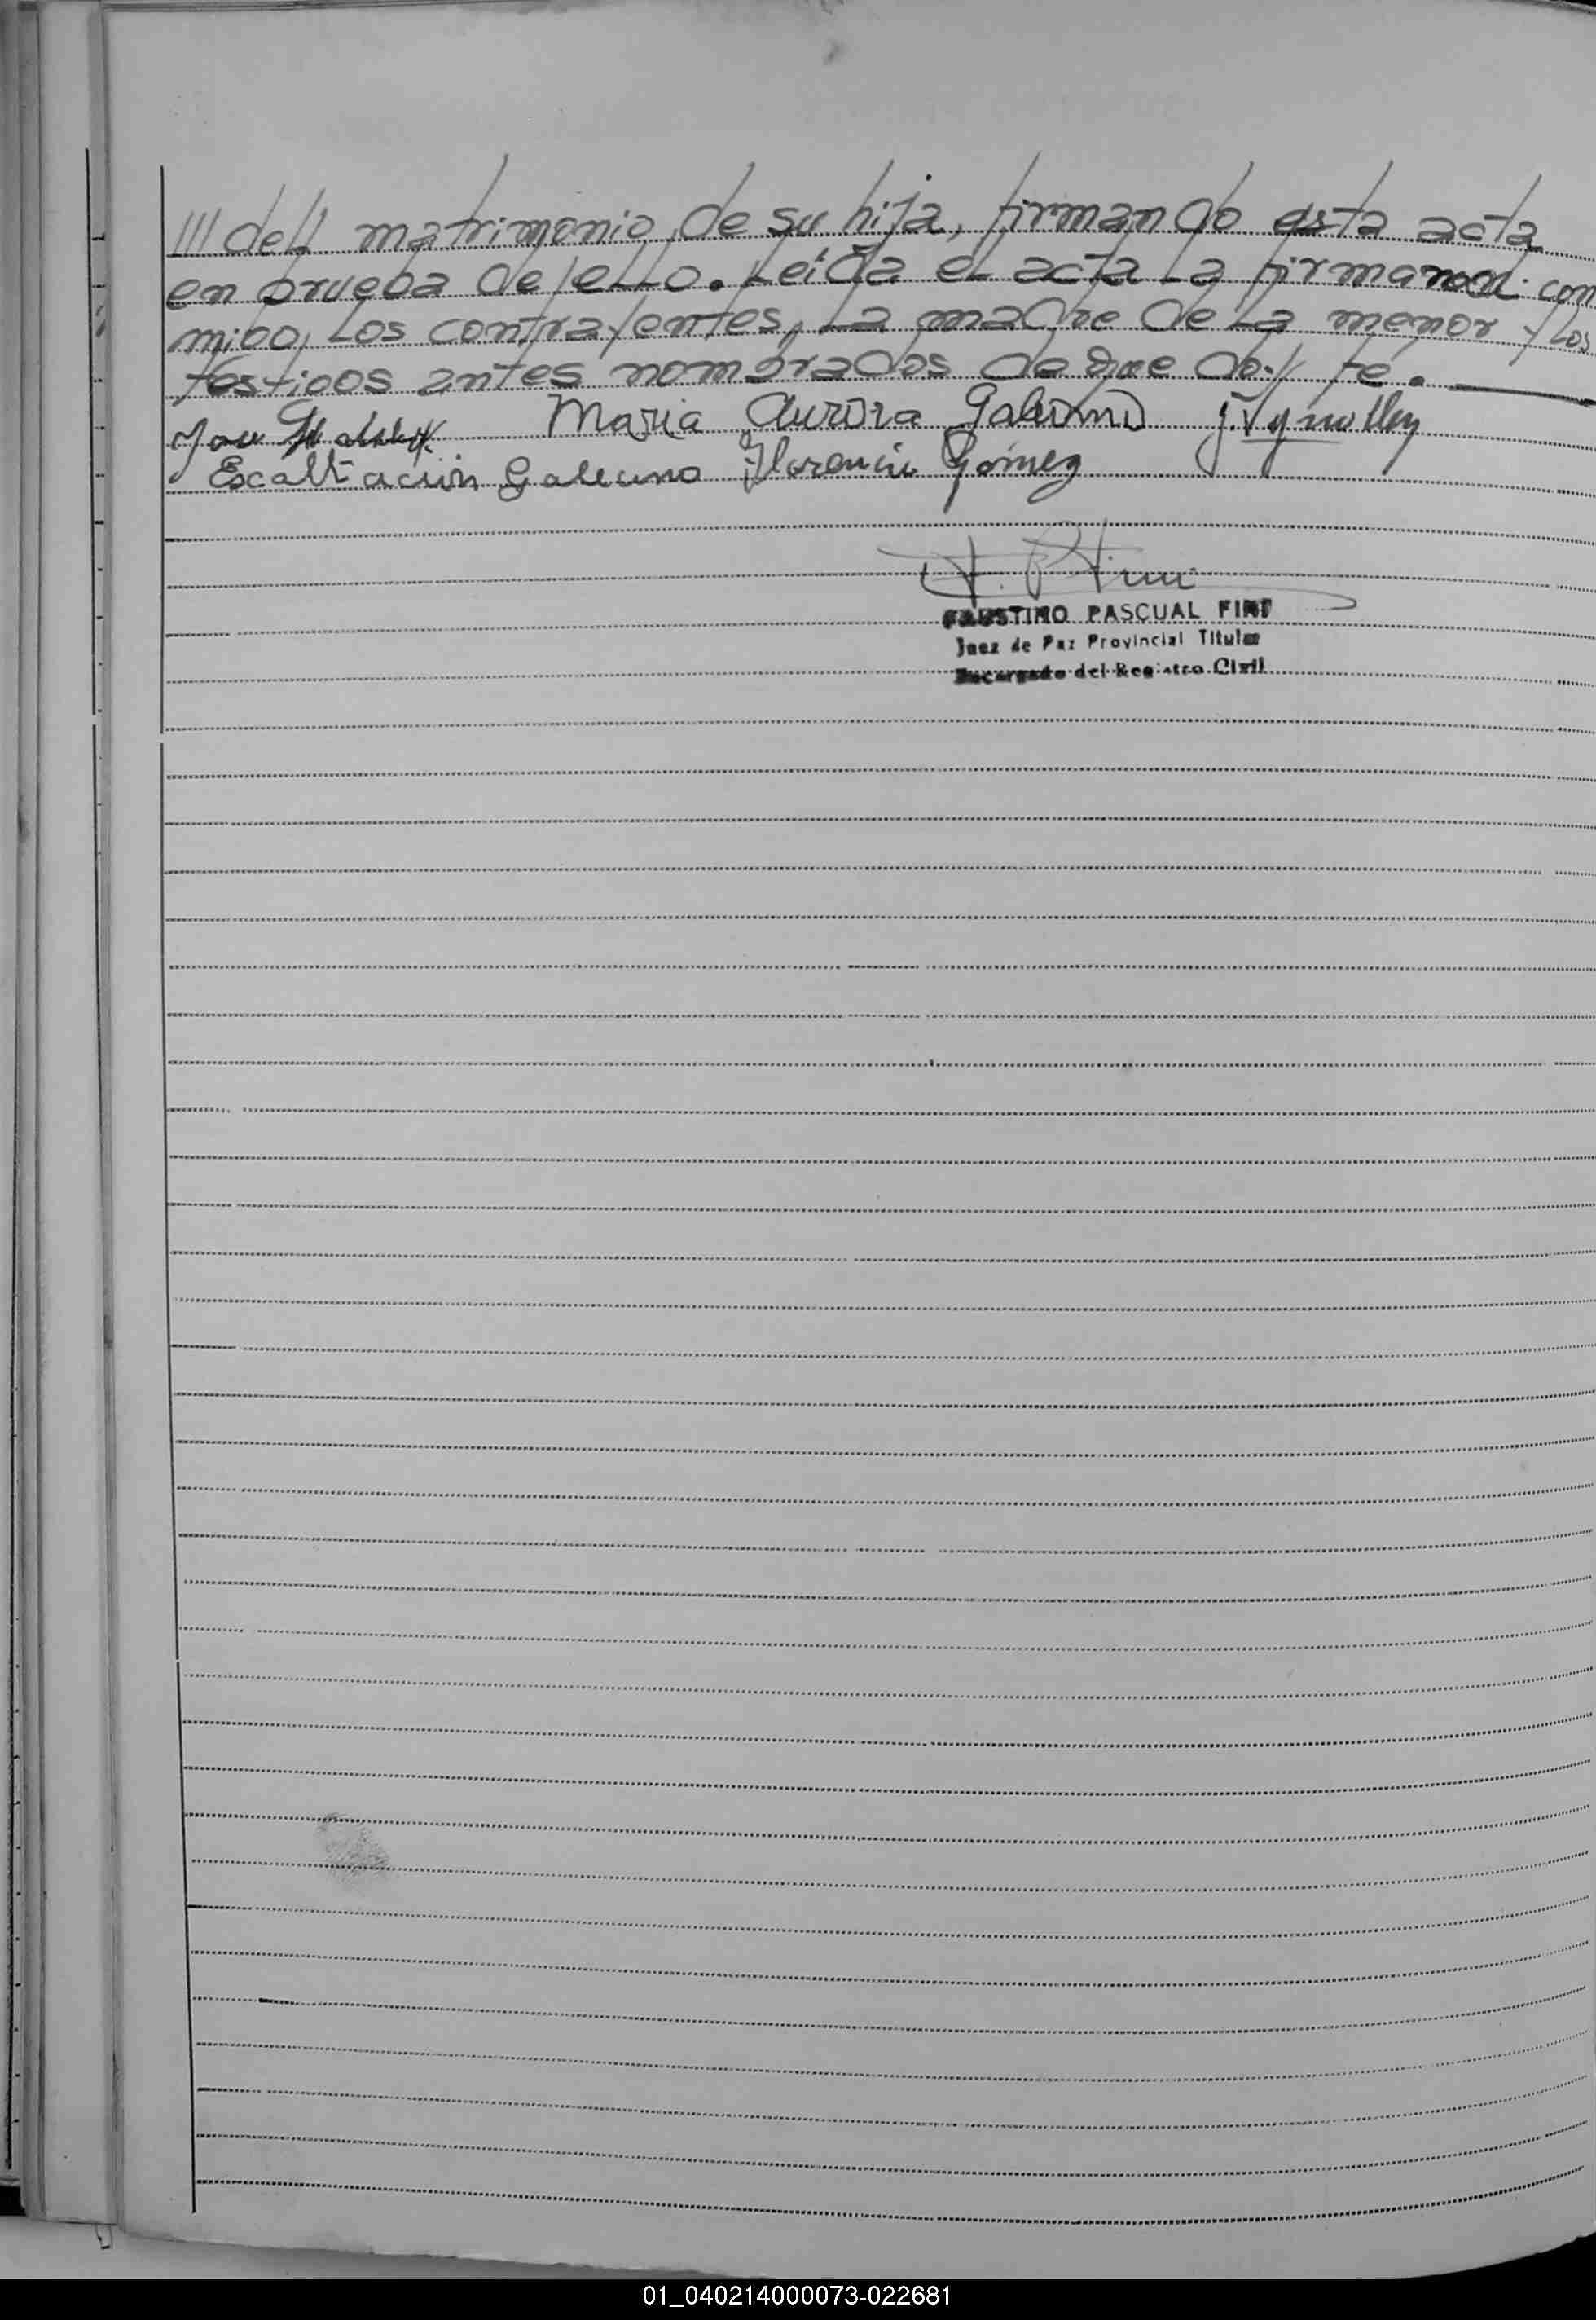 /// del matrimonio de su hija, firmando esta acta
en prueba de ello. Leída el acta la firmaron con
migo, Los contrayentes, La madre de La menor y Los
testigos antes nombrados de que doy fe.
Maria Aurora Galeano
Escaltación Galeano Florencio Gómez
FAUSTINO PASCUAL FINI
Juez de Paz Provincial Titular
Encargado del Registro Civil
01_040214000073-022681